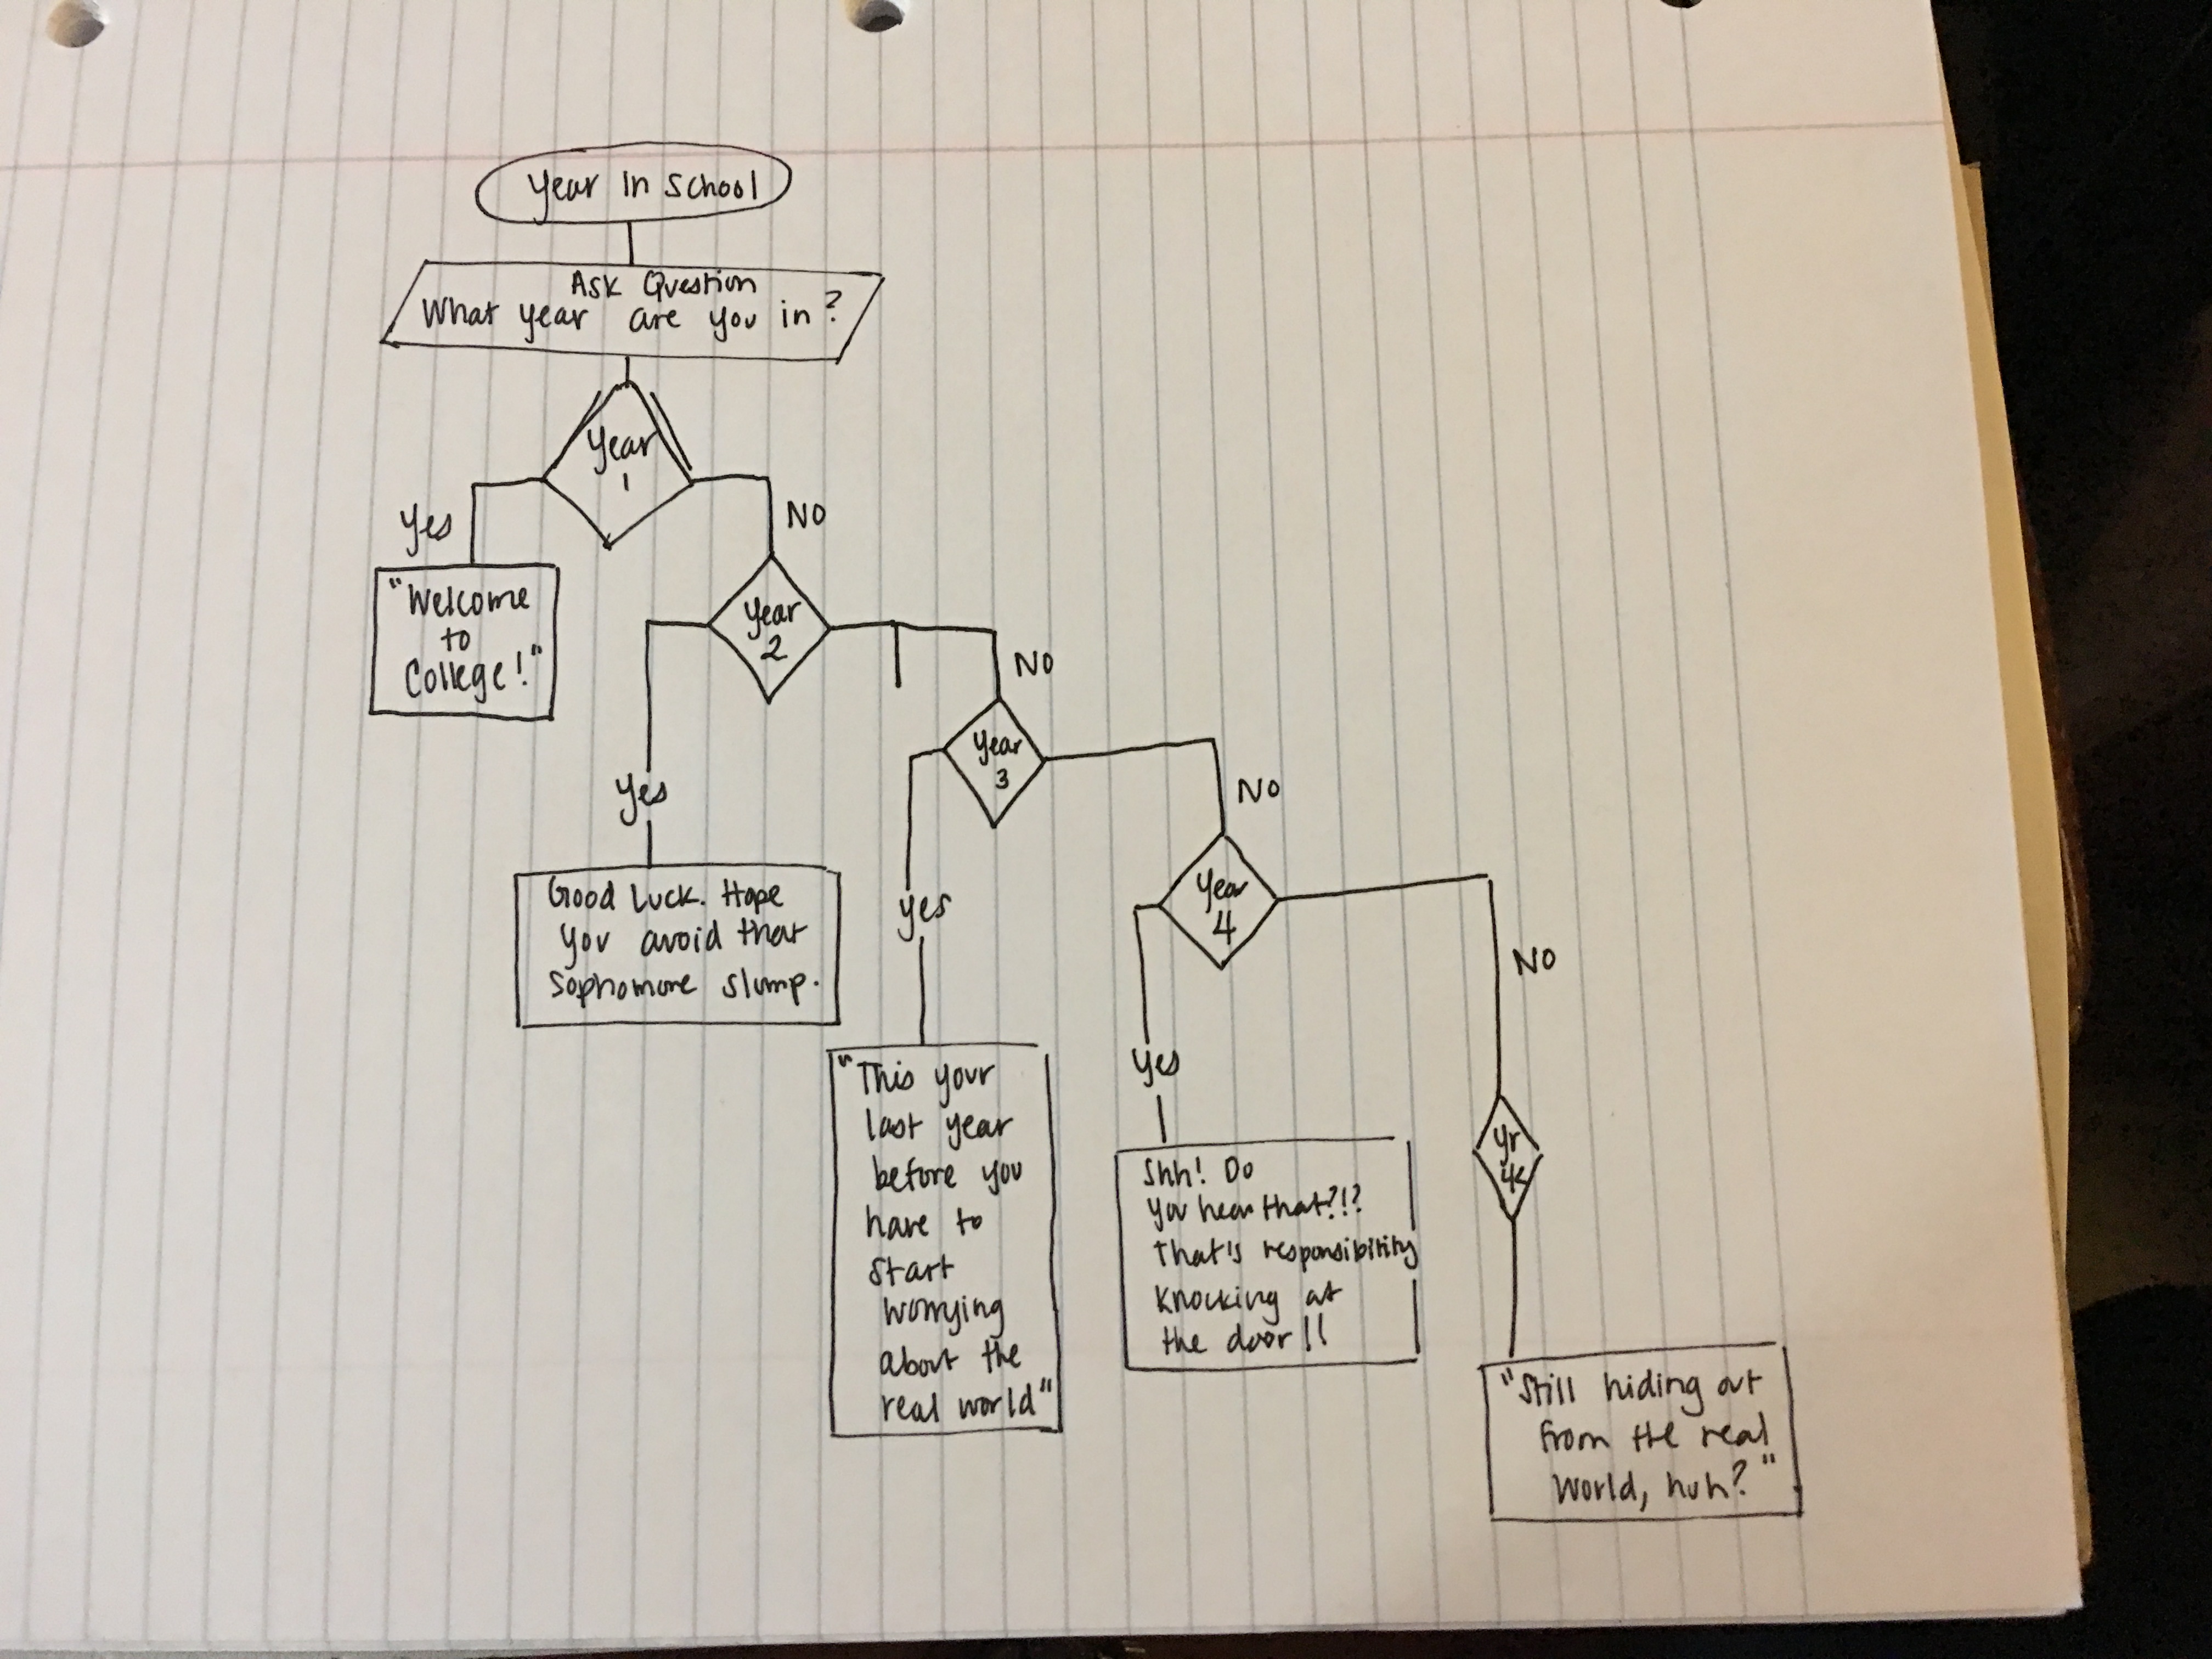 Year in School
Ask Question
What year are you in?
Year
1
Yes
NO
"Welcome
to
College!"
Year
2
NO
Yes
Good Luck. Hope
you avoid that
sophomore slump.
Year
3
NO
yes
"This your
last year
before you
have to
start
worrying
about the
real world"
Year
4
NO
yes
Shh! Do
you hear that?!?
That's responsibility
knocking at
the door!!
yr
4<
"Still hiding out
from the real
world, huh?"